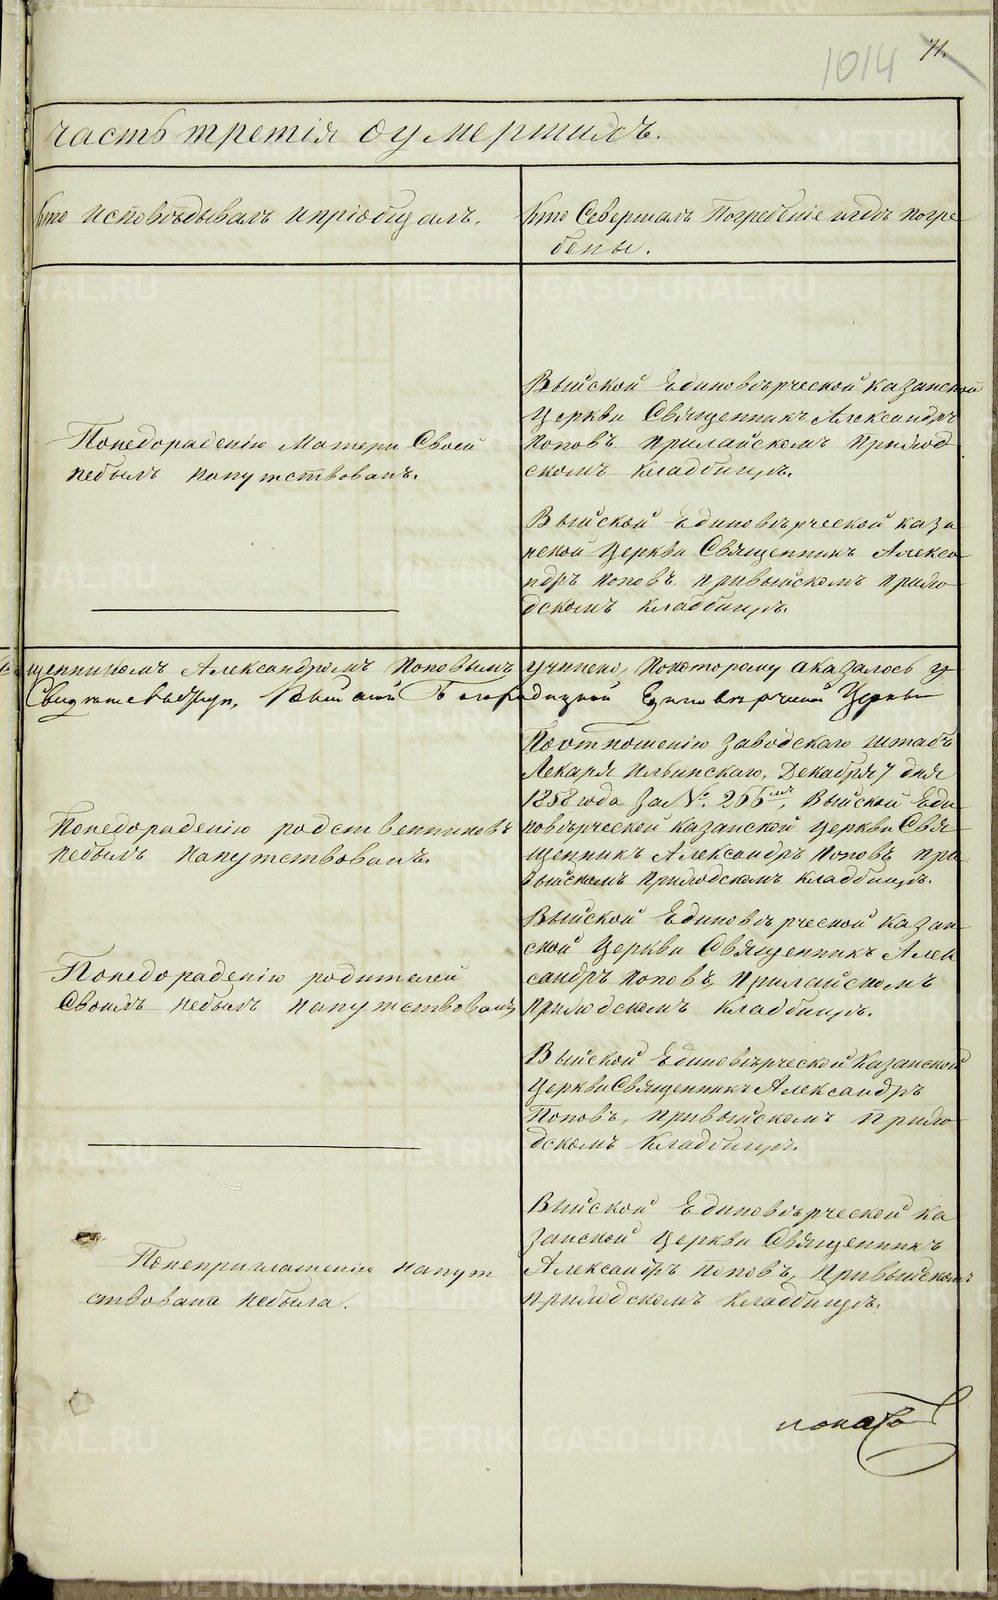 1014
71.
часть третія о умершихъ.
Кто исповѣдывалъ и пріобщалъ.
Кто Совершалъ Погребеніе и гдѣ погре
бены.
Понедорадѣнію Матери Своей
небылъ напутствованъ.
Выйской Единовѣрческой Казанской
Церкви Священникъ Александръ
Поповъ прилайскомъ Приход
скомъ Кладбищѣ.
Выйской Единовѣрческой каза
нской Церкви Священникъ Алекса
ндръ Поповъ привыйскомъ прихо
дскомъ Кладбищѣ.
щенникомъ Александромъ Поповымъ учинено, Покоторому аказалось у
Выйской Единовѣрческой Церкви
Понедорадѣнію родственниковъ
небылъ напутствованъ.
Поотношенію Заводскаго штабъ
Лекаря Ильинскаго, Декабря 7 дня
1858 года За № 266мъ, Выйской Еди
новѣрческой Казанской Церкви Свя
щенникъ Александръ Поповъ при
выйскомъ приходскомъ кладбищѣ.
Понедорадѣнію родителей
Своихъ небылъ напутствованъ
Выйской Единовѣрческой Казан
ской Церкви Священникъ Алек
сандръ Поповъ, Прилайскомъ
Приходскомъ Кладбищѣ.
Выйской Единовѣрческой Казанской
Церкви Священникъ Александръ
Поповъ, привыйскомъ Прихо
дскомъ Кладбищѣ.
Понеприглашенію напут
ствована небыла.
Выйской Единовѣрческой Ка
занской Церкви Священникъ
Александръ Поповъ, Привыйскомъ
приходскомъ Кладбищѣ.
METRIKI.GASO-URAL.RU